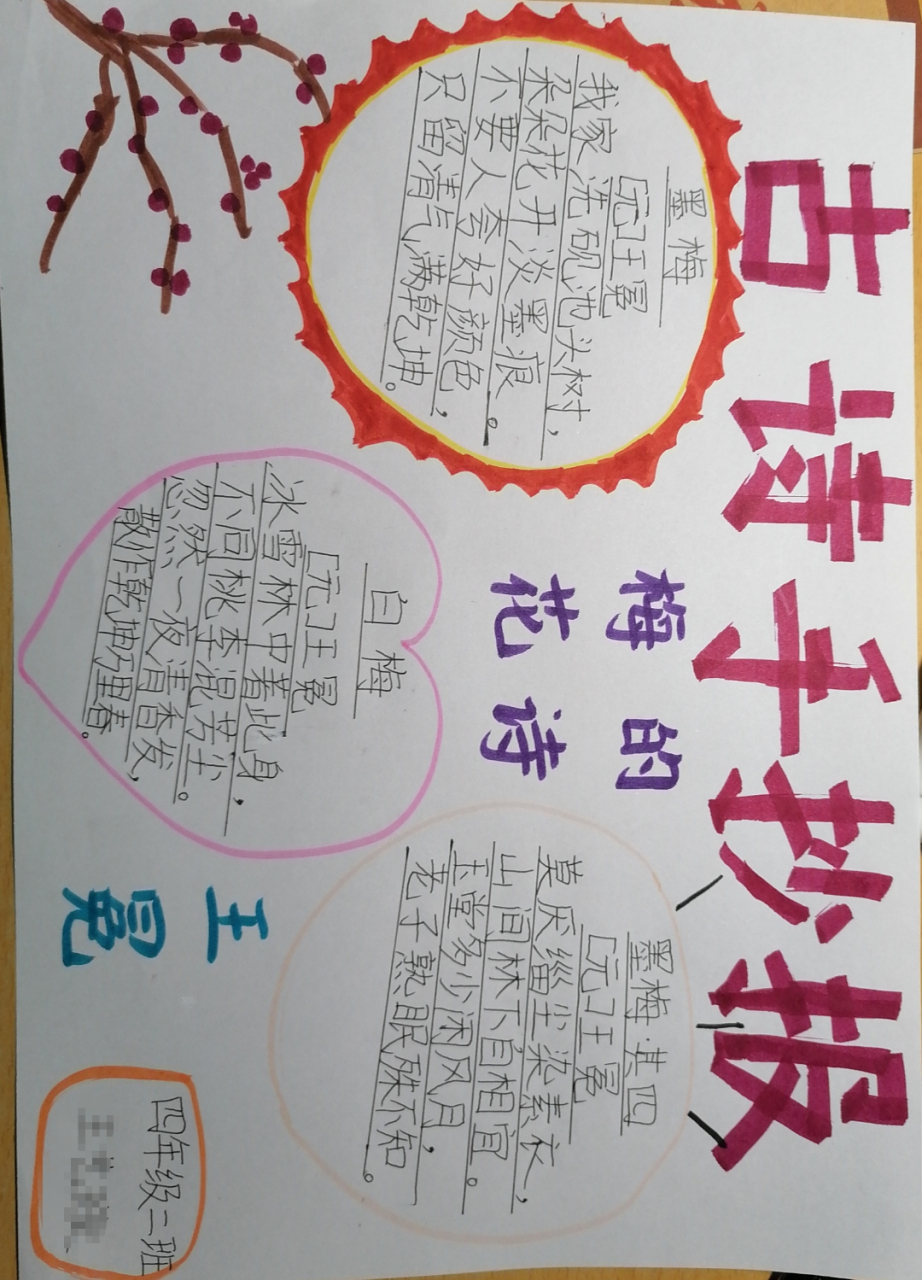 古诗手抄报
墨梅
[元]王冕
我家洗砚池头树,
朵朵花开淡墨痕。
不要人夸好颜色,
只留清气满乾坤。
梅的
花诗
白梅
[元]王冕
冰雪林中著此身,
不同桃李混芳尘。
忽然一夜清香发,
散作乾坤万里春。
墨梅·其四
[元]王冕
莫厌缁尘染素衣,
山间林下自相宜。
玉堂多少闲风月,
老子熟眠殊不知。
王冕
四年级二班